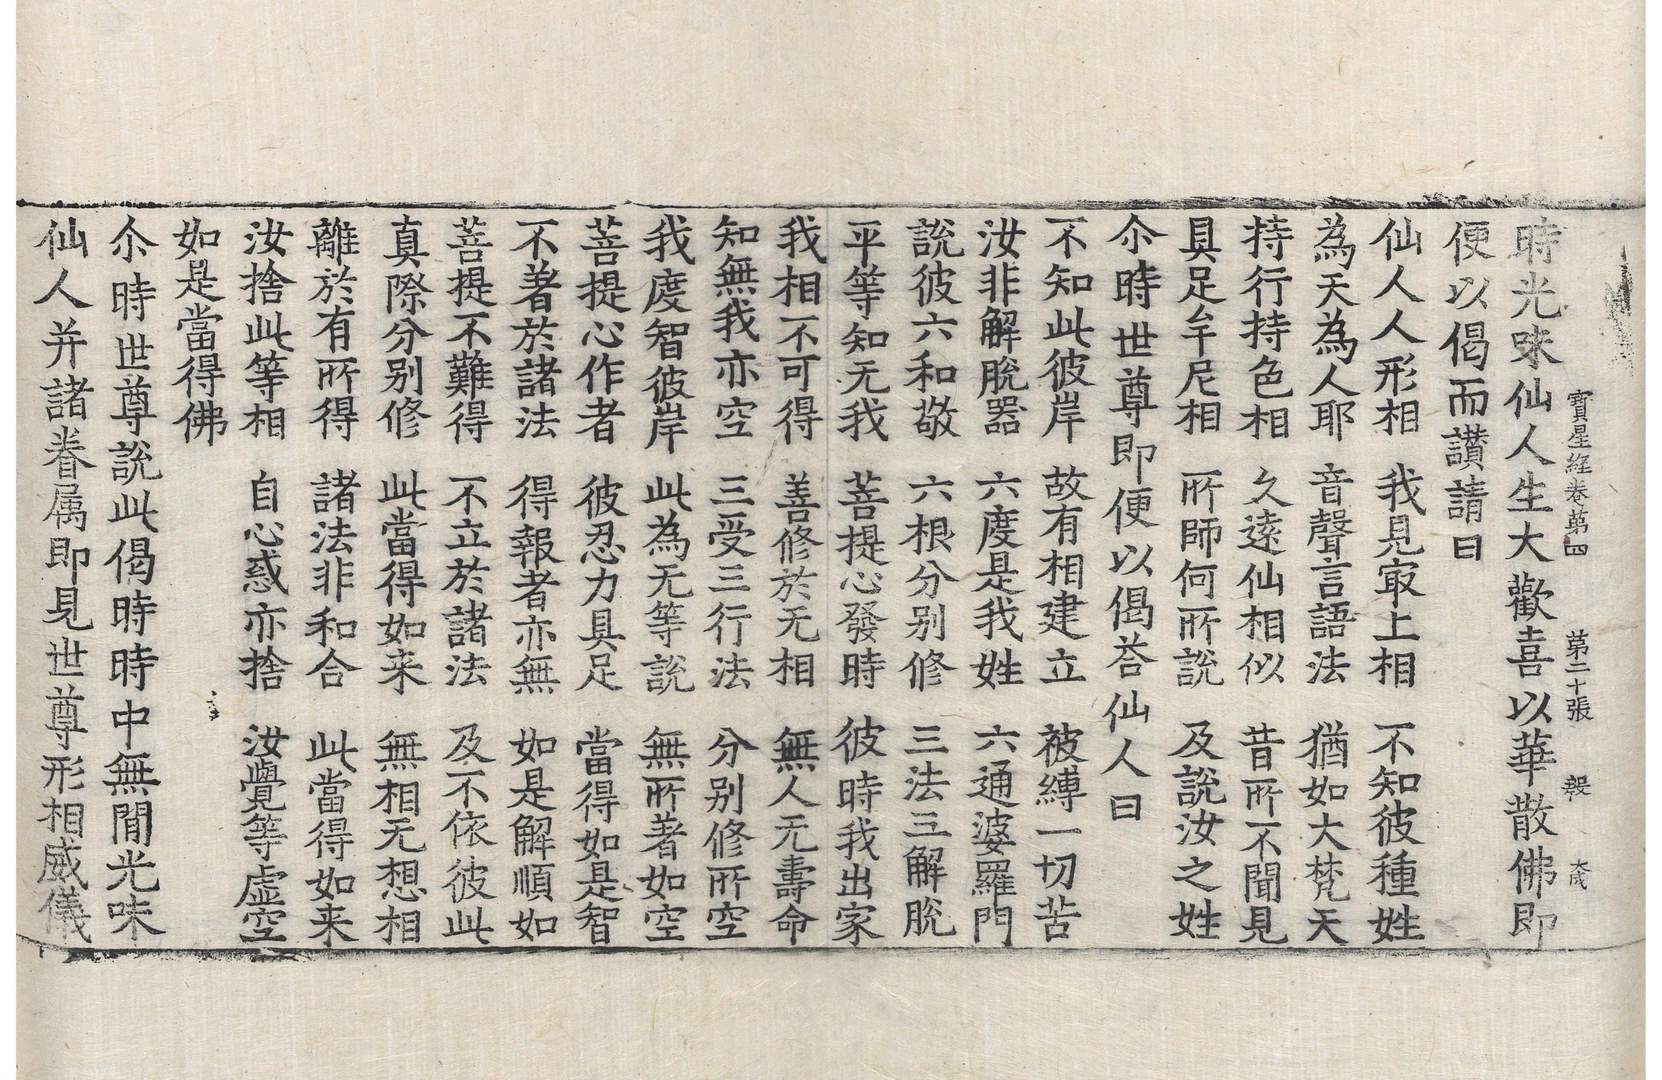 寳星經卷第四 第二十張 㲄 大成
時光味仙人生大歡喜以華散佛即
便以偈而讃請曰
仙人人形相 我見冣上相 不知彼種姓
為天為人耶 音聲言語法 猶如大梵天
持行持色相 久遠仙相似 昔所不聞見
具足牟尼相 所師何所說 及說汝之姓
尒時世尊即便以偈荅仙人曰
不知此彼岸 故有相建立 被縛一切苦
汝非解脫器 六度是我姓 六通婆羅門
說彼六和敬 六根分别修 三法三解脫
平等知无我 菩提心發時 彼時我出家
我相不可得 善修於无相 無人无壽命
知無我亦空 三受三行法 分别修所空
我度智彼岸 此為无等說 無所著如空
菩提心作者 彼忍力具足 當得如是智
不著於諸法 得報者亦無 如是解順如
菩提不難得 不立於諸法 及不依彼此
真際分别修 此當得如来 無相无想相
離於有所得 諸法非和合 此當得如来
汝捨此等相 自心惑亦捨 汝覺等虛空
如是當得佛
尒時世尊說此偈時時中無閒光味
仙人并諸眷属即見世尊形相威儀